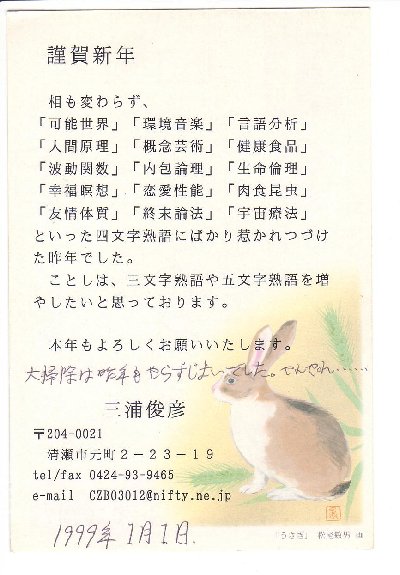 謹賀新年
相も変わらず、
「可能世界」「環境音楽」「言語分析」
「人間原理」「概念芸術」「健康食品」
「波動関数」「内包論理」「生命倫理」
「幸福瞑想」「恋愛性能」「肉食昆虫」
「友情体質」「終末論法」「宇宙療法」
といった四文字熟語にばかり惹かれつづけ
た昨年でした。
ことしは、三文字熟語や五文字熟語を増
やしたいと思っております。
本年もよろしくお願いいたします。
大掃除は昨年もやらずじまいでした。
三浦俊彦
〒204-0021
清瀬市元町2-23-19
tel/fax 0424-93-9465
e-mail CZB03012@nifty.ne.jp
1999年1月1日.
「うさぎ」